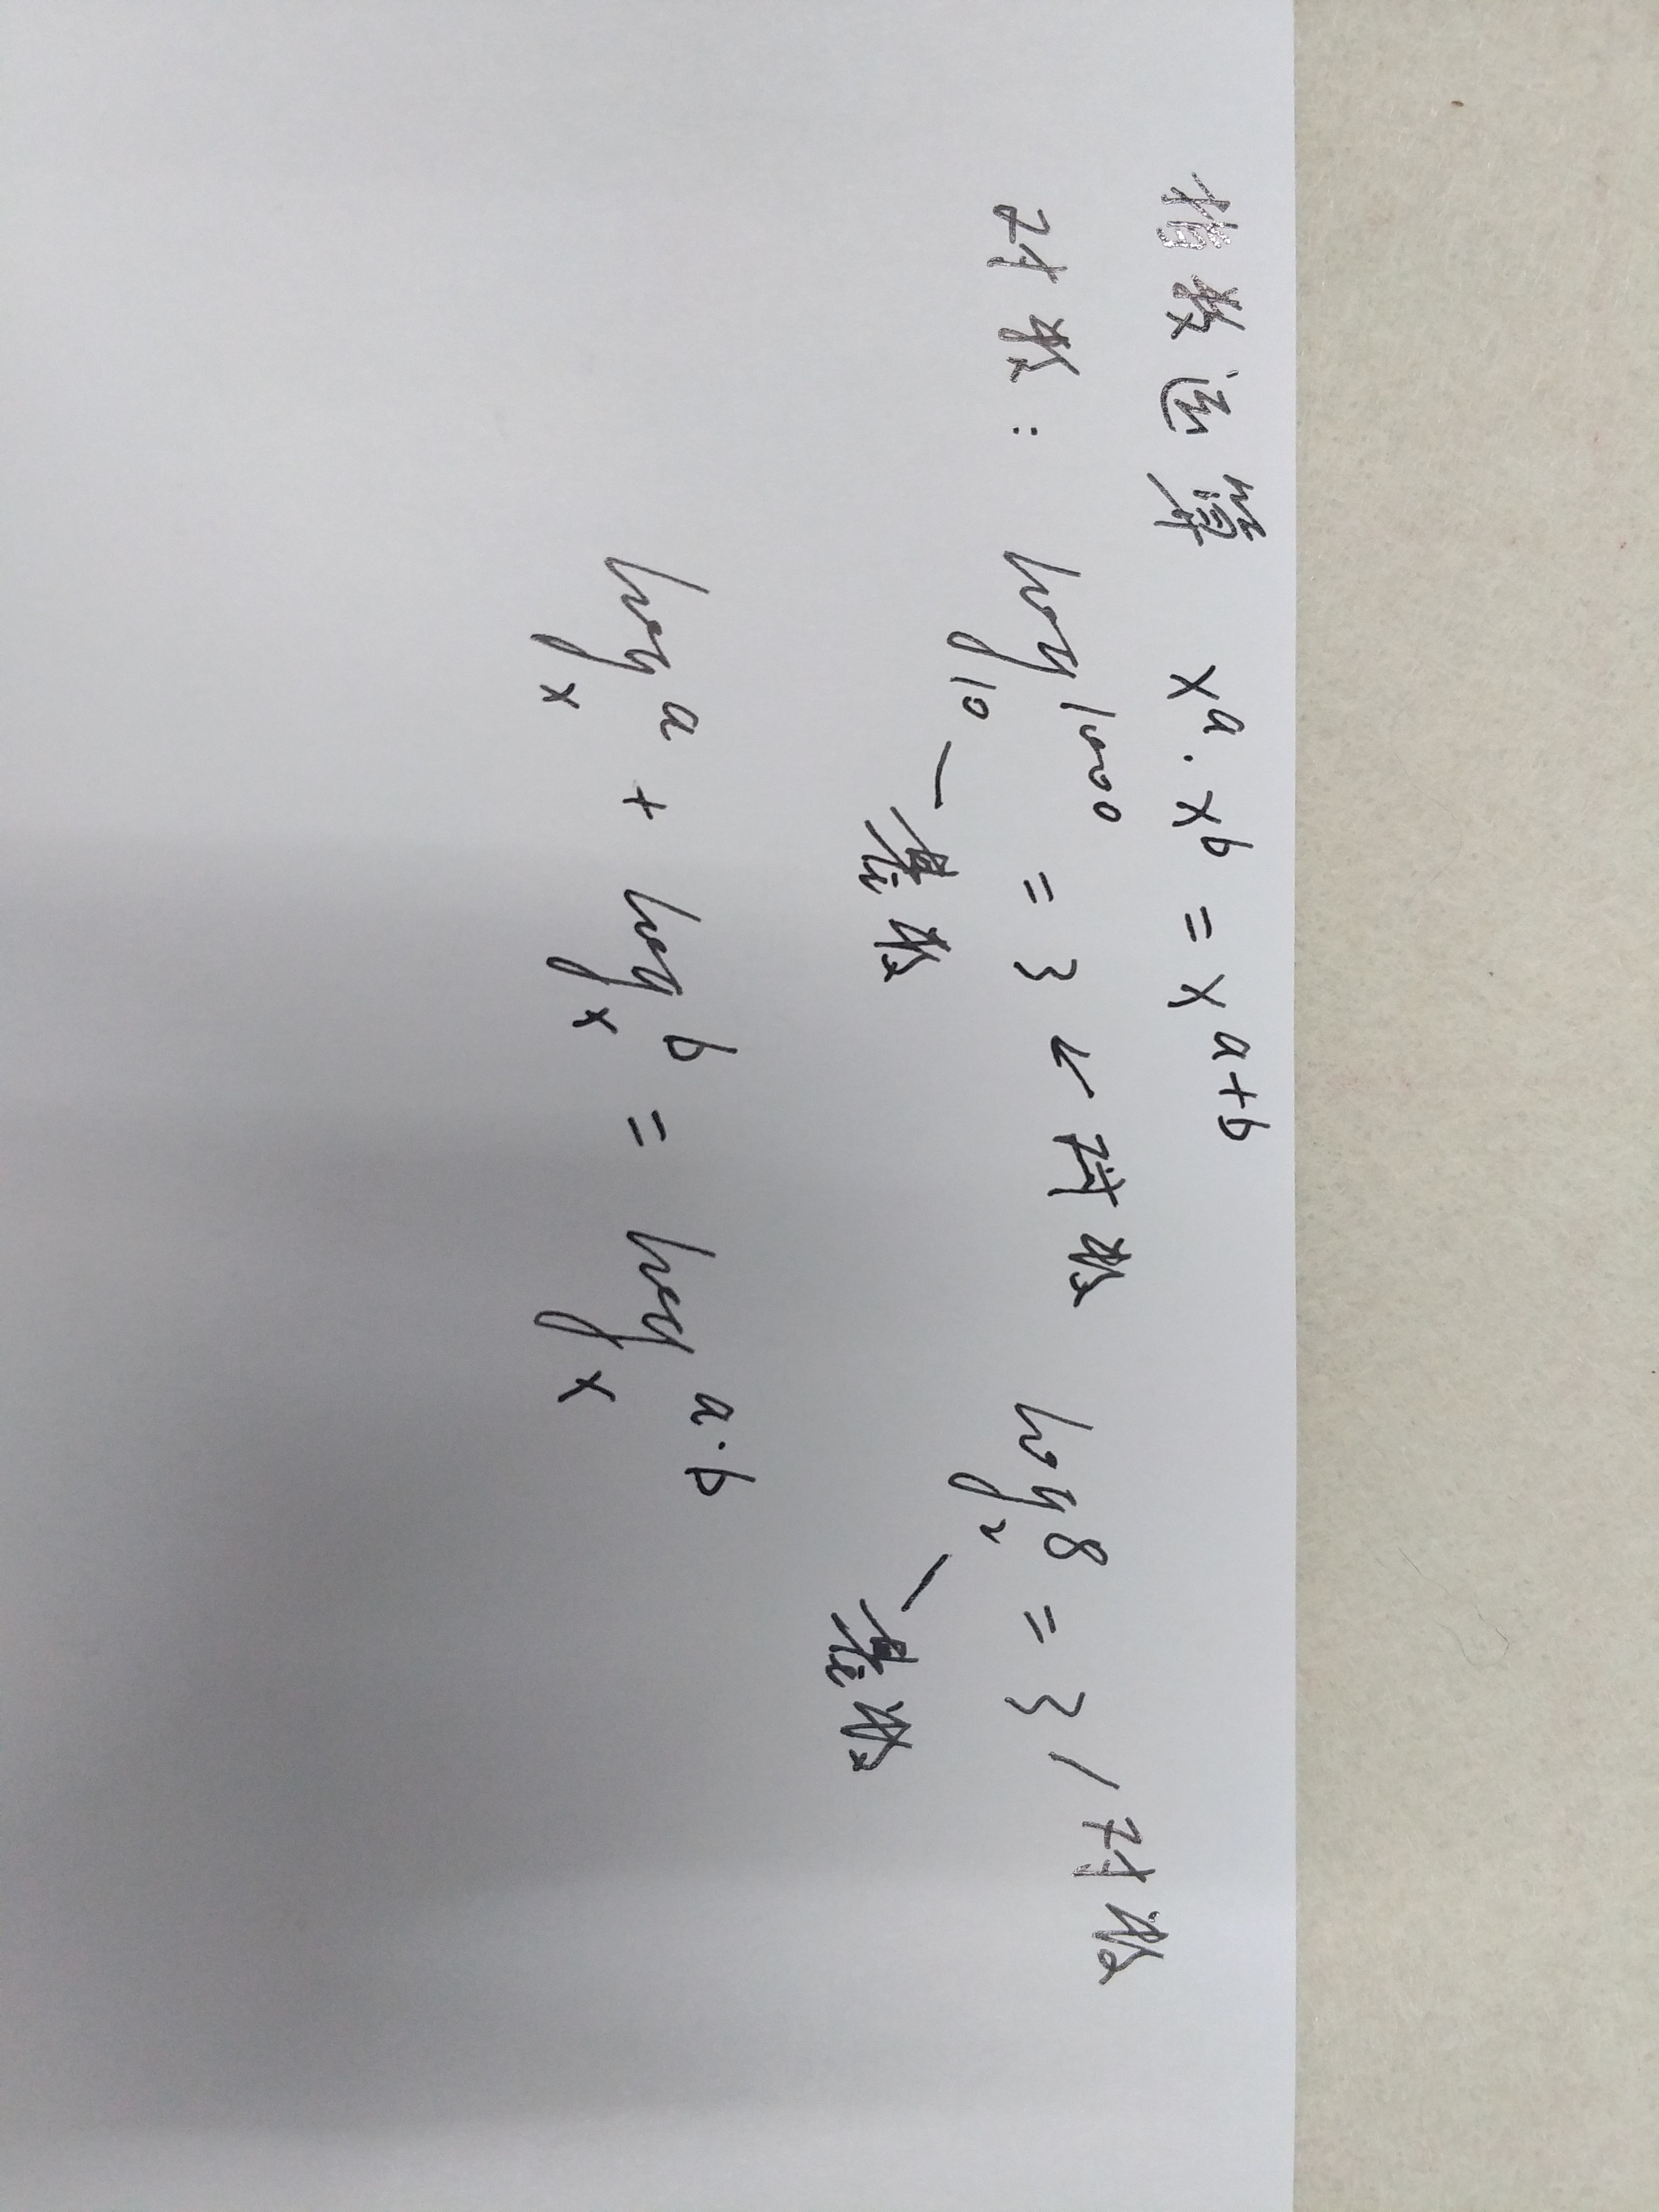 指数运算 xᵃ·xᵇ = xᵃ⁺ᵇ
对数: log₁₀1000 = 3 ← 对数 log₂8 = 3 / 对数
底数 底数
logₓa + logₓb = logₓa·b